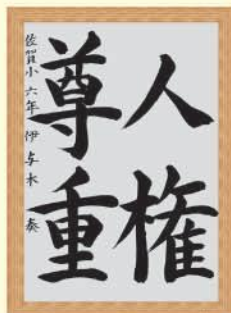 人権
尊重
佐賀小六年 伊与木 奏